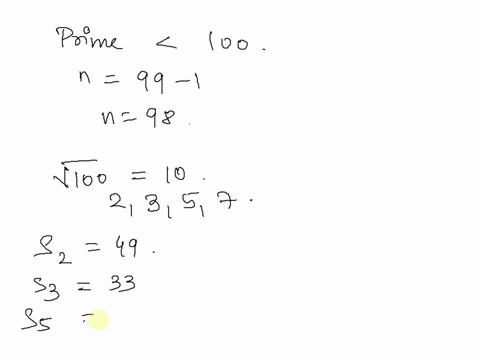 Prime < 100.
n = 99 - 1
n = 98.
√100 = 10.
2, 3, 5, 7.
S₂ = 49.
S₃ = 33
S₅ =